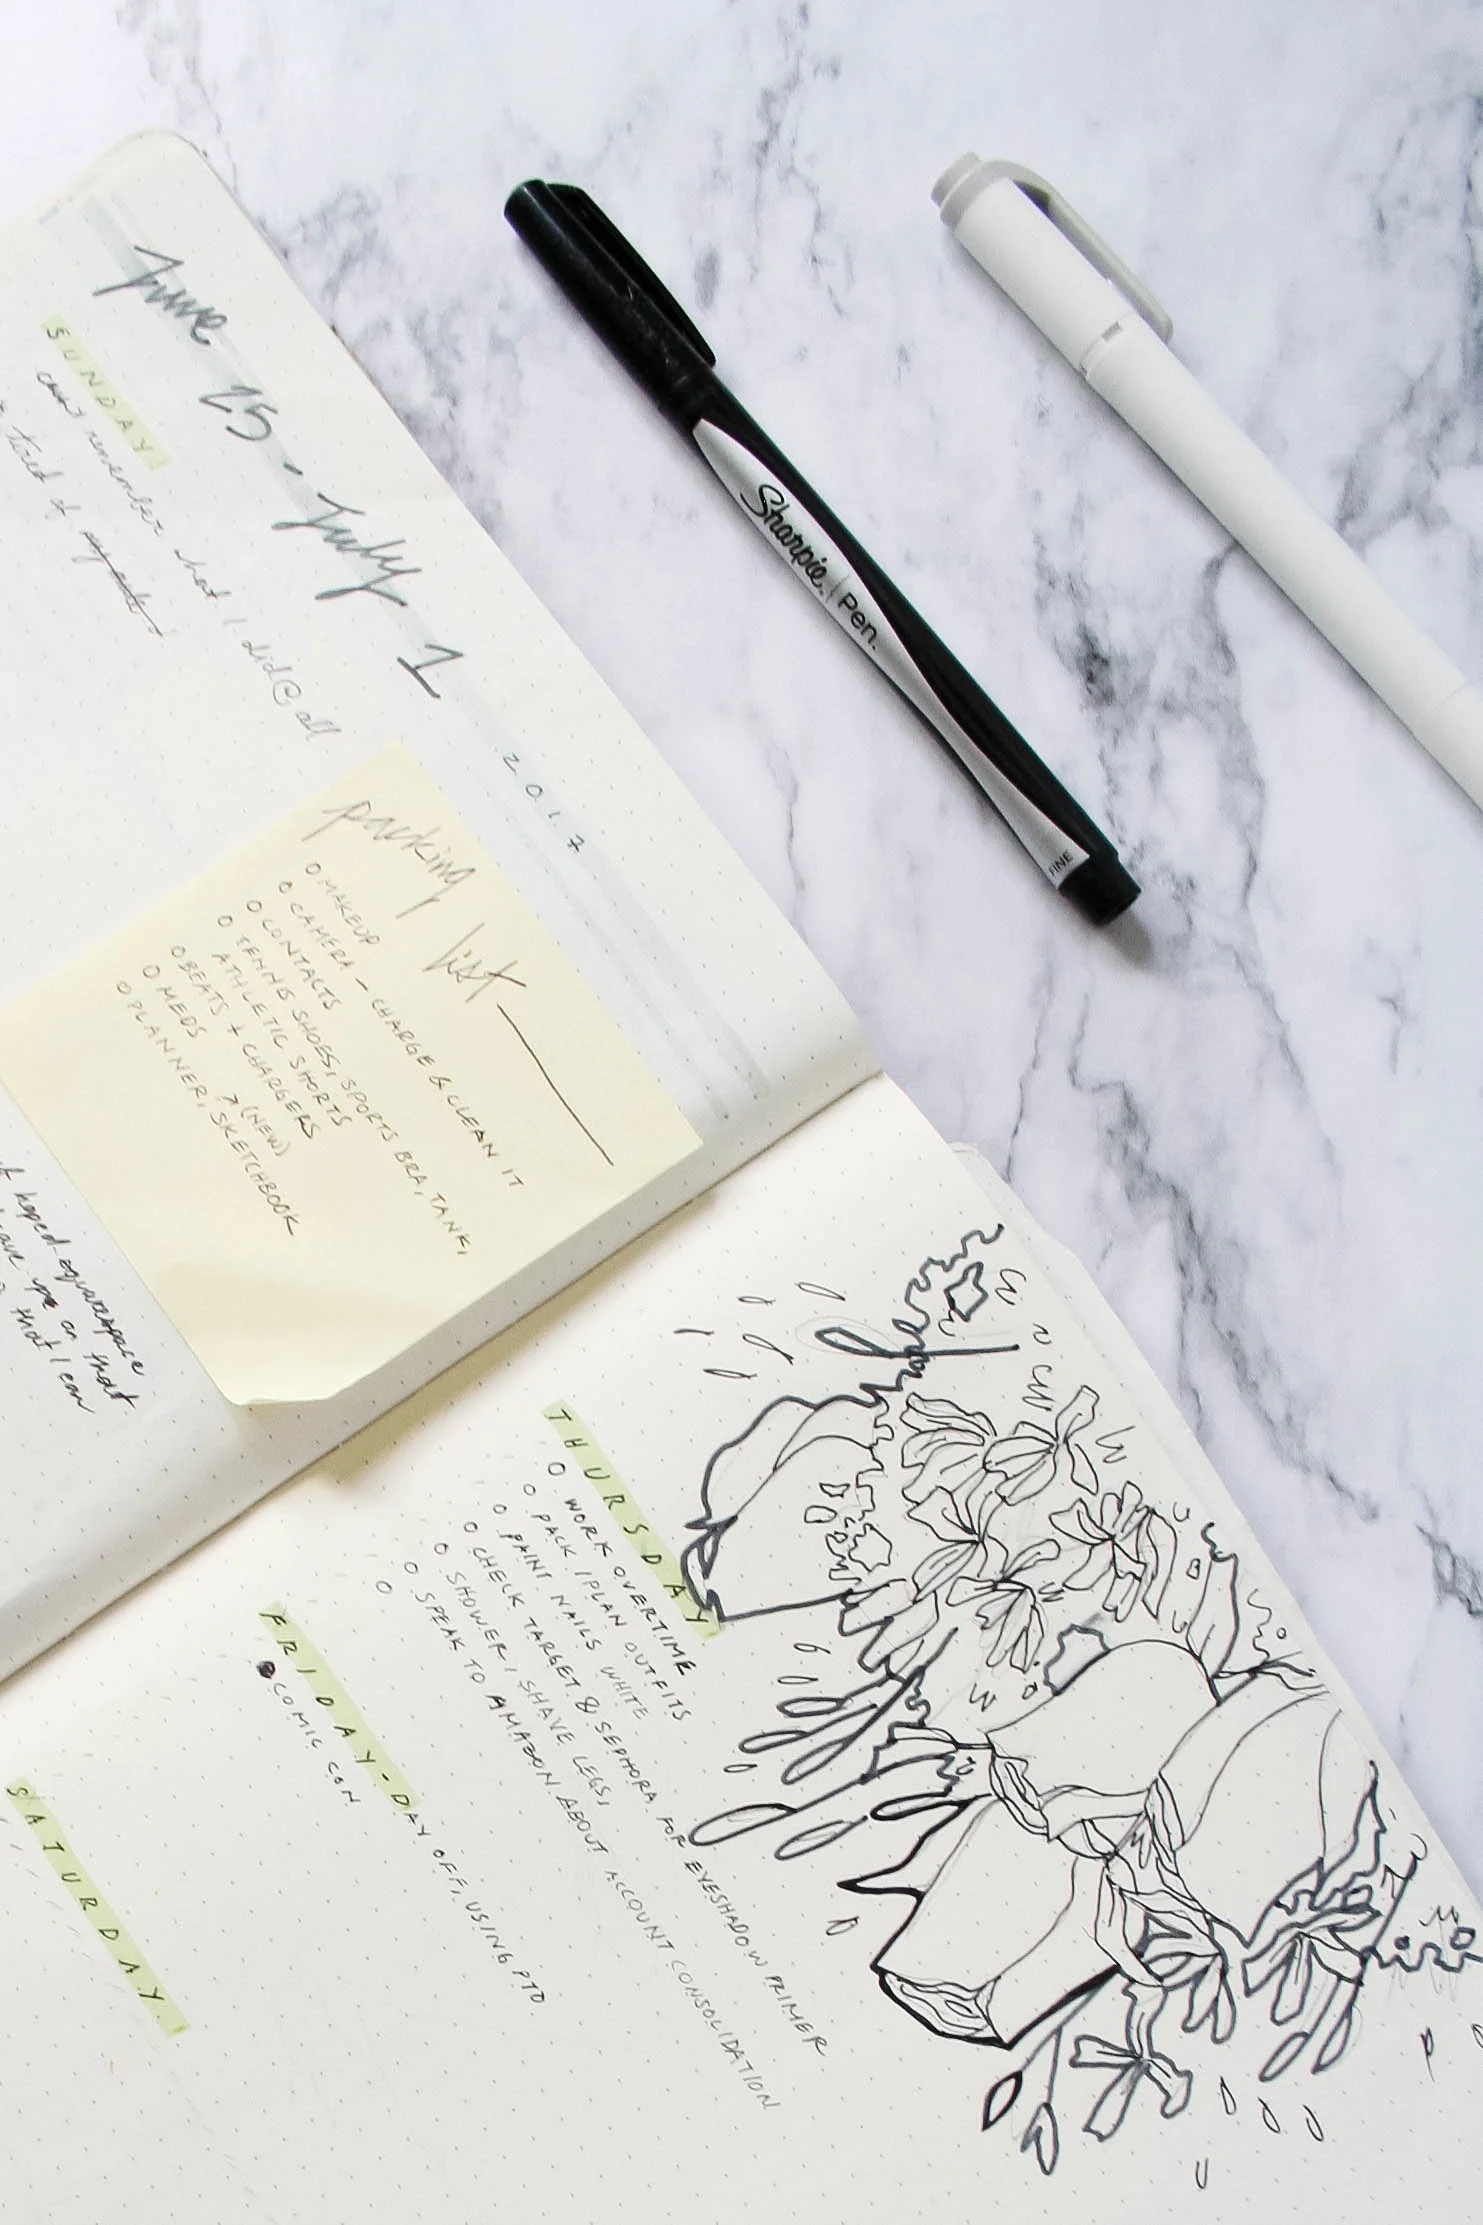 June 25 - July 1
2.0.1.7
SUNDAY
can't remember what I did @ all
tired of
packing list
O MAKEUP
O CAMERA - CHARGE & CLEAN IT
O CONTACTS
O TENNIS SHOES, SPORTS BRA, TANK,
ATHLETIC SHORTS
O BEATS + CHARGERS
O MEDS ↗ (NEW)
O PLANNER, SKETCHBOOK
hoped squarespace
on that
that I can
THURSDAY
O WORK OVERTIME
O PACK / PLAN OUTFITS
O PAINT NAILS WHITE
O CHECK TARGET & SEPHORA FOR EYESHADOW PRIMER
O SHOWER, SHAVE LEGS,
O SPEAK TO AMAZON ABOUT ACCOUNT CONSOLIDATION
O
FRIDAY - DAY OFF, USING PTO
• COMIC CON
SATURDAY
Sharpie. Pen.
FINE